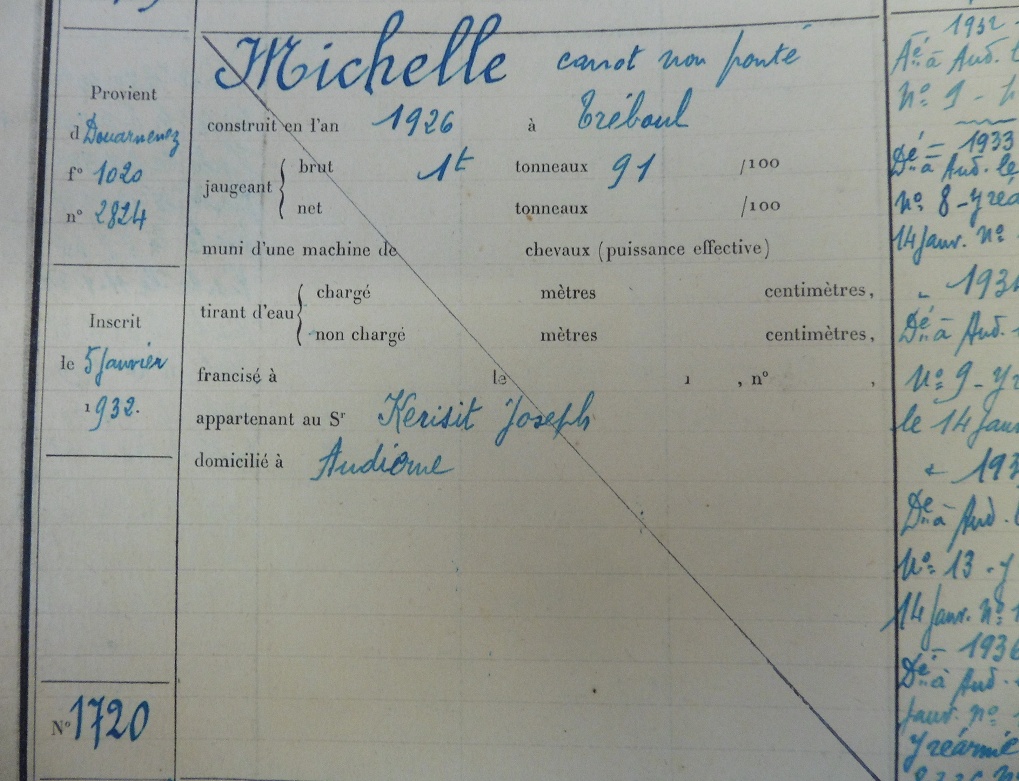 Provient
d Douarnenez
f° 1020
n° 2824
Inscrit
le 5 Janvier
1932.
N° 1720
Michelle canot non ponté
construit en l'an 1926 à Tréboul
jaugeant { brut 1t tonneaux 91 /100
net tonneaux /100
muni d'une machine de chevaux (puissance effective)
tirant d'eau { chargé mètres centimètres,
non chargé mètres centimètres,
francisé à le 1 , n° ,
appartenant au Sr Kerisit Joseph
domicilié à Audierne
1932
Aé à Aud.
N° 9 -
Dé - 1933
à Aud. le
N° 8 -
14 Janv. N°
Dé à Aud.
N° 9 -
le 14 Janv
Dé à Aud.
N° 13 -
14 Janv. N°
- 1936
Dé à Aud.
Janv. N°